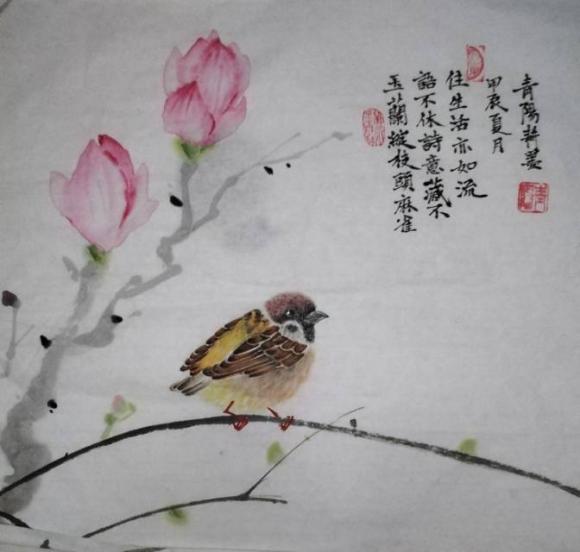 玉蘭綻枝頭麻雀
語不休詩意藏不
住生活亦如流
甲辰夏月
青陽